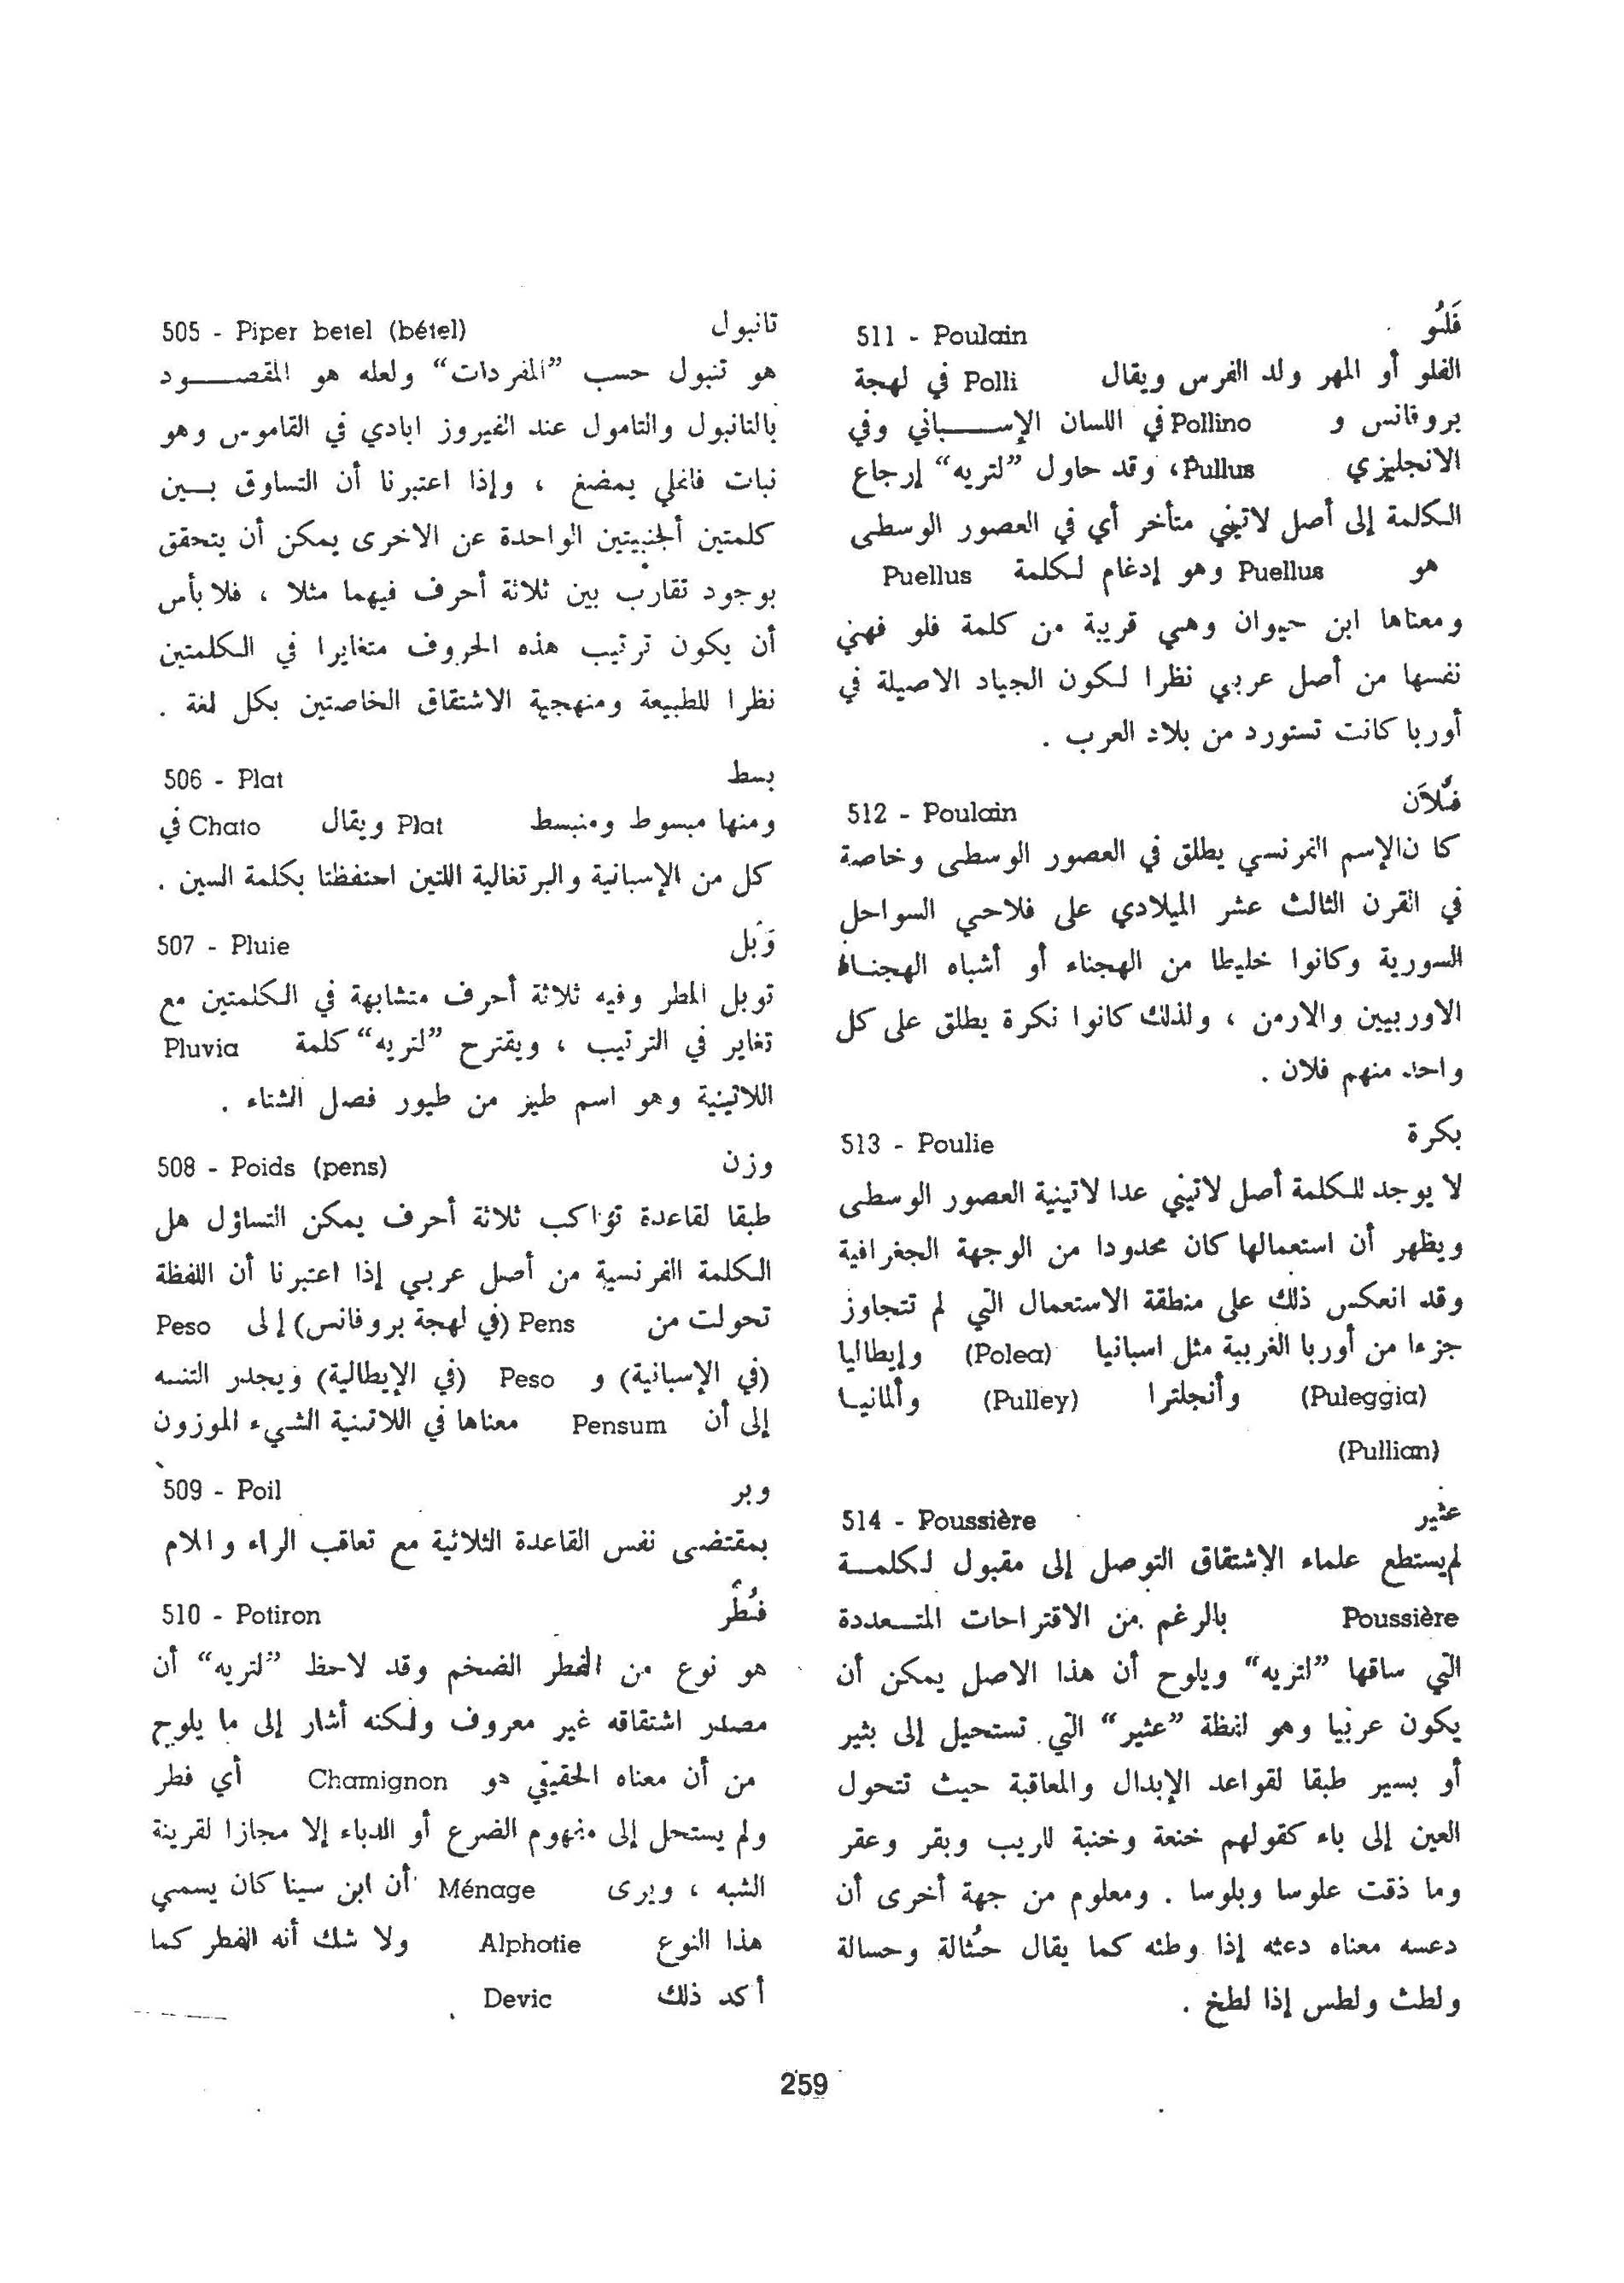 505 - Piper betel (bétel) تانبول
هو تنبول حسب ”المفردات“ ولعله هو المقصــود
بالتانبول والتامول عند الفيروز ابادي في القاموس وهو
نبات فانملي يمضغ ، وإذا اعتبرنا أن التساوق بــين
كلمتين أجنبيتين الواحدة عن الاخرى يمكن أن يتحقق
بوجود تقارب بين ثلاثة أحرف فيهما مثلا ، فلا بأس
أن يكون ترتيب هذه الحروف متغايرا في الكلمتين
نظرا للطبيعة ومنهجية الاشتقاق الخاصتين بكل لغة .
506 - Plat بسط
ومنها مبسوط ومنبسط Plat ويقال Chato في
كل من الإسبانية والبرتغالية اللتين احتفظتا بكلمة السين .
507 - Pluie وَبْل
توبل المطر وفيه ثلاثة أحرف متشابهة في الكلمتين مع
تغاير في الترتيب ، ويقترح ”لتريه“ كلمة Pluvia
اللاتينية وهو اسم طير من طيور فصل الشتاء .
508 - Poids (pens) وزن
طبقا لقاعدة تواكب ثلاثة أحرف يمكن التساؤل هل
الكلمة الفرنسية من أصل عربي إذا اعتبرنا أن اللفظة
تحولت من Pens (في لهجة بروفانس) إلى Peso
(في الإسبانية) و Peso (في الإيطالية) ويجدر التنبيه
إلى أن Pensum معناها في اللاتينية الشيء الموزون
509 - Poil وبر
بمقتضى نفس القاعدة الثلاثية مع تعاقب الراء واللام
510 - Potiron فُطْر
هو نوع من الفطر الضخم وقد لاحظ ”لتريه“ أن
مصدر اشتقاقه غير معروف ولكنه أشار إلى ما يلوح
من أن معناه الحقيقي هو Chamignon أي فطر
ولم يستحل إلى مفهوم الضرع أو الدباء إلا مجازا لقرينة
الشبه ، ويرى Ménage أن ابن سينا كان يسمي
هذا النوع Alphotie ولا شك أنه الفطر كما
أكد ذلك Devic
511 - Poulain فَلُو
الفلو أو المهر ولد الفرس ويقال Polli في لهجة
بروفانس و Pollino في اللسان الإســباني وفي
الانجليزي Pullus، وقد حاول ”لتريه“ إرجاع
الكلمة إلى أصل لاتيني متأخر أي في العصور الوسطى
هو Puellus وهو إدغام لكلمة Puellus
ومعناها ابن حيوان وهي قريبة من كلمة فلو فهني
نفسها من أصل عربي نظرا لكون الجياد الاصيلة في
أوربا كانت تستورد من بلاد العرب .
512 - Poulain فُلاَن
كا ن الإسم الفرنسي يطلق في العصور الوسطى وخاصة
في القرن الثالث عشر الميلادي على فلاحي السواحل
السورية وكانوا خليطا من الهجناء أو أشباه الهجنــاء
الاوربيين والارمن ، ولذلك كانوا نكرة يطلق على كل
واحد منهم فلان .
513 - Poulie بكرة
لا يوجد للكلمة أصل لاتيني عدا لاتينية العصور الوسطى
ويظهر أن استعمالها كان محدودا من الوجهة الجغرافية
وقد انعكس ذلك على منطقة الاستعمال التي لم تتجاوز
جزءا من أوربا الغربية مثل اسبانيا (Polea) وإيطاليا
(Puleggia) وأنجلترا (Pulley) وألمانيــا
(Pullian)
514 - Poussière عثير
لم يستطع علماء الإشتقاق التوصل إلى مقبول لكلمــة
Poussière بالرغم من الاقتراحات المتــعددة
التي ساقها ”لتريه“ ويلوح أن هذا الاصل يمكن أن
يكون عربيا وهو لفظة ”عثير“ التي تستحيل إلى بثير
أو بسير طبقا لقواعد الإبدال والمعاقبة حيث تتحول
العين إلى باء كقولهم خنعة وخنبة للريب وبقر وعقر
وما ذقت علوسا وبلوسا . ومعلوم من جهة أخرى أن
دعسه معناه دعثه إذا وطئه كما يقال حُثالة وحسالة
ولطث ولطس إذا لطخ .
259